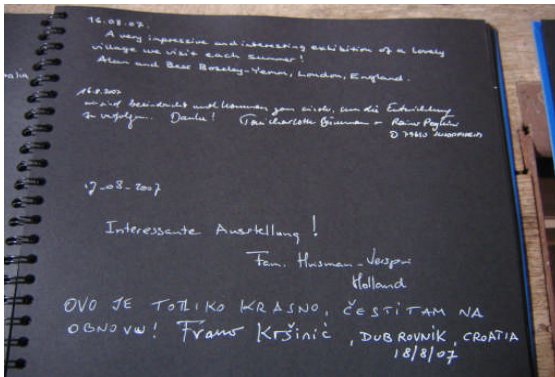 16.08.07.
A very impressive and interesting exhibition of a lovely
village we visit each summer!
Alan and Bess Boseley-Yemm, London, England.
16.8.2007
wir sind beeindruckt und kommen gern wieder, um die Entwicklung
zu verfolgen. Danke! Rainer
D 79650
17-08-2007
Interessante Ausstellung!
Fam. Huisman-
Holland
OVO JE TOLIKO KRASNO, ČESTITAM NA
OBNOVI! Frano Kršinić, DUBROVNIK, CROATIA
18/8/07